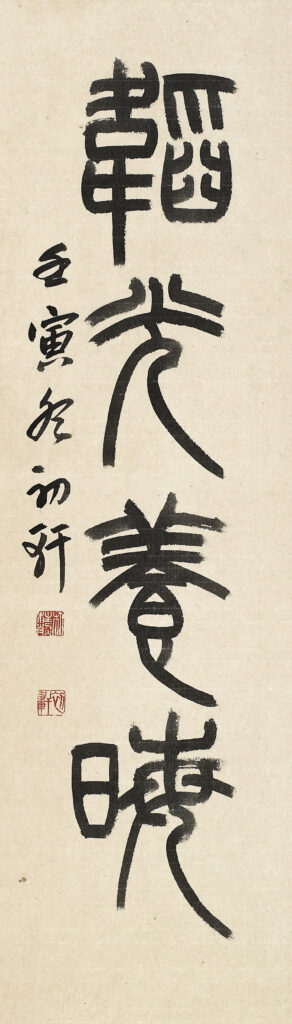 韜光養晦
壬寅冬初玕